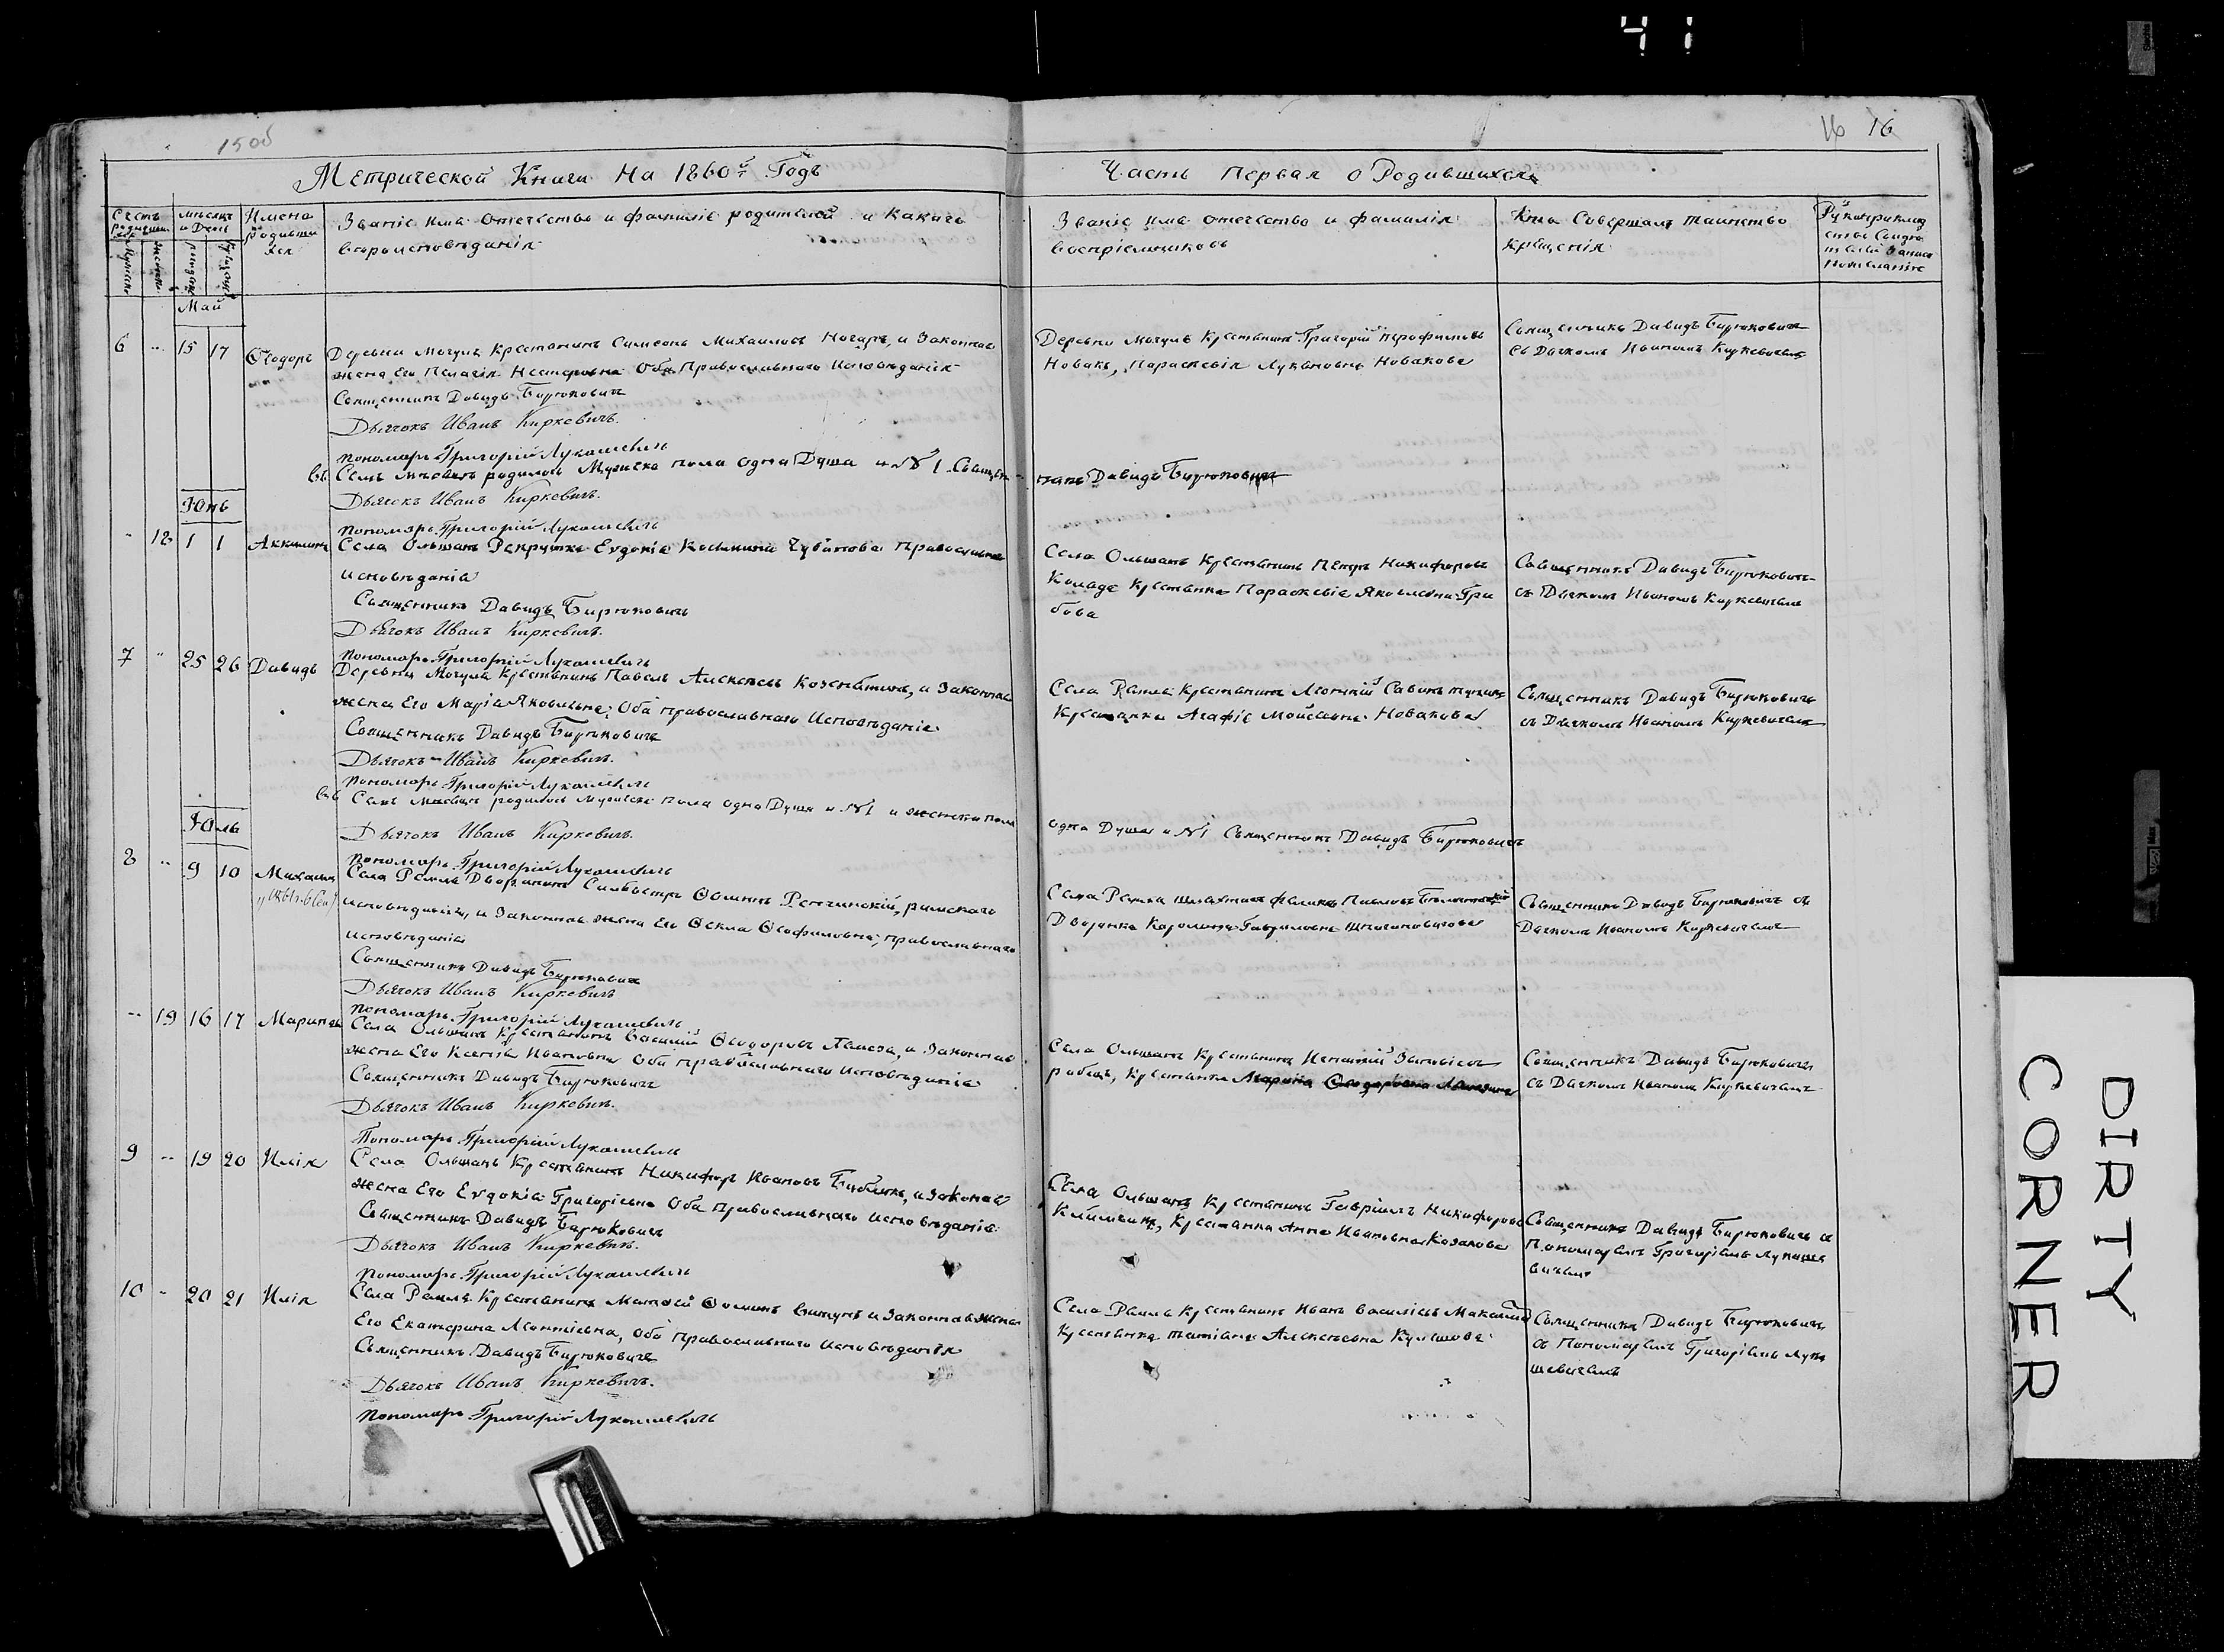 41
15об
16 16
Метрической Книги На 1860й Годъ
Часть Первая о Родившихся
Счетъ родившихся
мѣсяцъ и День
Имена родившихся
Званіе имя отечество и фамиліе родителей и Какаго
вероисповѣданія
Званіе имя отечество и фамилія
воспріемниковъ
Кто Совершалъ таинство
крещенія
Май
6 " 15 17 Ѳеодоръ
Деревни Мочулъ Крестьянинъ Симеонъ Михаиловъ Ночаръ, и Законная
жена Его Пелагія Несторовна Оба Православнаго Исповѣданія
Священникъ Давидъ Бирюковичъ
Дьячокъ Иванъ Киркевичъ.
Пономарь Григорій Лукашевичъ
Деревни Мочулъ Крестьянинъ Григорій
Новакъ, Параскевія Лукьяновна Новакова
Священникъ Давидъ Бирюковичъ
съ Дячкомъ Иваномъ Киркевичемъ
Въ Семъ мѣсяцѣ родилось Мужеска пола одна Душа и №1 Священ
никъ Давидъ Бирюковичъ
Дьячокъ Иванъ Киркевичъ.
Пономарь Григорій Лукашевичъ
Юнь
" 18 1 1 Аккилина
Села Ольшанъ Рекрутка Евдокія Чубанова Православнаго
исповѣданія
Священникъ Давидъ Бирюковичъ
Дьячокъ Иванъ Киркевичъ.
Пономарь Григорій Лукашевичъ
Села Ольшанъ Крестьянинъ Петръ Никифоровъ
Коляда Крестьянка Параскевія Яковлевна Гри
бова
Священникъ Давидъ Бирюковичъ
съ Дячкомъ Иваномъ Киркевичемъ
7 " 25 26 Давидъ
Деревни Мочулъ Крестьянинъ Павелъ Алексѣевъ и Законная
жена Его Марія Яковлевна; Оба православнаго Исповѣданіе
Священникъ Давидъ Бирюковичъ
Дьячокъ Иванъ Киркевичъ.
Пономарь Григорій Лукашевичъ
Села Рамля Крестьянинъ Леонтій Савинъ
Крестьянка Агафія Мойсѣевна Новакова
Священникъ Давидъ Бирюковичъ
съ Дячкомъ Иваномъ Киркевичемъ
Въ Семъ мѣсяцѣ родилось мужеска пола одна Душа и №1 и женска пола
одна Душа и №1 Священникъ Давидъ Бирюковичъ
Дьячокъ Иванъ Киркевичъ.
Пономарь Григорій Лукашевичъ
Юль
8 " 9 10 Михаилъ
Села Рамля Дворянинъ Сильвестръ Ѳоминъ римскаго
исповѣданія, и Законная жена Его Ѳекла Ѳеофиловна, православнаго
исповѣданія
Священникъ Давидъ Бирюковичъ
Дьячокъ Иванъ Киркевичъ
Пономарь Григорій Лукашевичъ
Села Рамля шляхтичъ Феликсъ Павловъ
Дворянка Каролина Гавриловна
Священникъ Давидъ Бирюковичъ съ
Дячкомъ Иваномъ Киркевичемъ
" 19 16 17 Марина
Села Ольшанъ Крестьянинъ Василій Ѳеодоровъ и Законная
жена Его Ксенія Ивановна Оба православнаго исповѣданія
Священникъ Давидъ Бирюковичъ
Дьячокъ Иванъ Киркевичъ.
Пономарь Григорій Лукашевичъ
Села Ольшанъ Крестьянинъ Игнатій
Крестьянка Марина Ѳеодоровна
Священникъ Давидъ Бирюковичъ
съ Дячкомъ Иваномъ Киркевичемъ
9 " 19 20 Илія
Села Ольшанъ Крестьянинъ Никифоръ Ивановъ и законная
жена Его Евдокія Григоріевна Оба православнаго исповѣданія
Священникъ Давидъ Бирюковичъ
Дьячокъ Иванъ Киркевичъ.
Пономарь Григорій Лукашевичъ
Села Ольшанъ Крестьянинъ Гавріилъ Никифоровъ
Крестьянка Анна Ивановна Козакова
Священникъ Давидъ Бирюковичъ съ
Пономаремъ Григоріемъ Лукаше
вичемъ
10 " 20 21 Илія
Села Рамля Крестьянинъ Матѳей Ѳоминъ и Законная жена
Его Екатерина Леонтіевна, оба православнаго исповѣданія
Священникъ Давидъ Бирюковичъ
Дьячокъ Иванъ Киркевичъ.
Пономарь Григорій Лукашевичъ
Села Рамля Крестьянинъ Иванъ Василіевъ
Крестьянка Татіана Алексѣевна Кулишова
Священникъ Давидъ Бирюковичъ
съ Пономаремъ Григоріемъ Лука
шевичемъ
DIRTY
CORNER